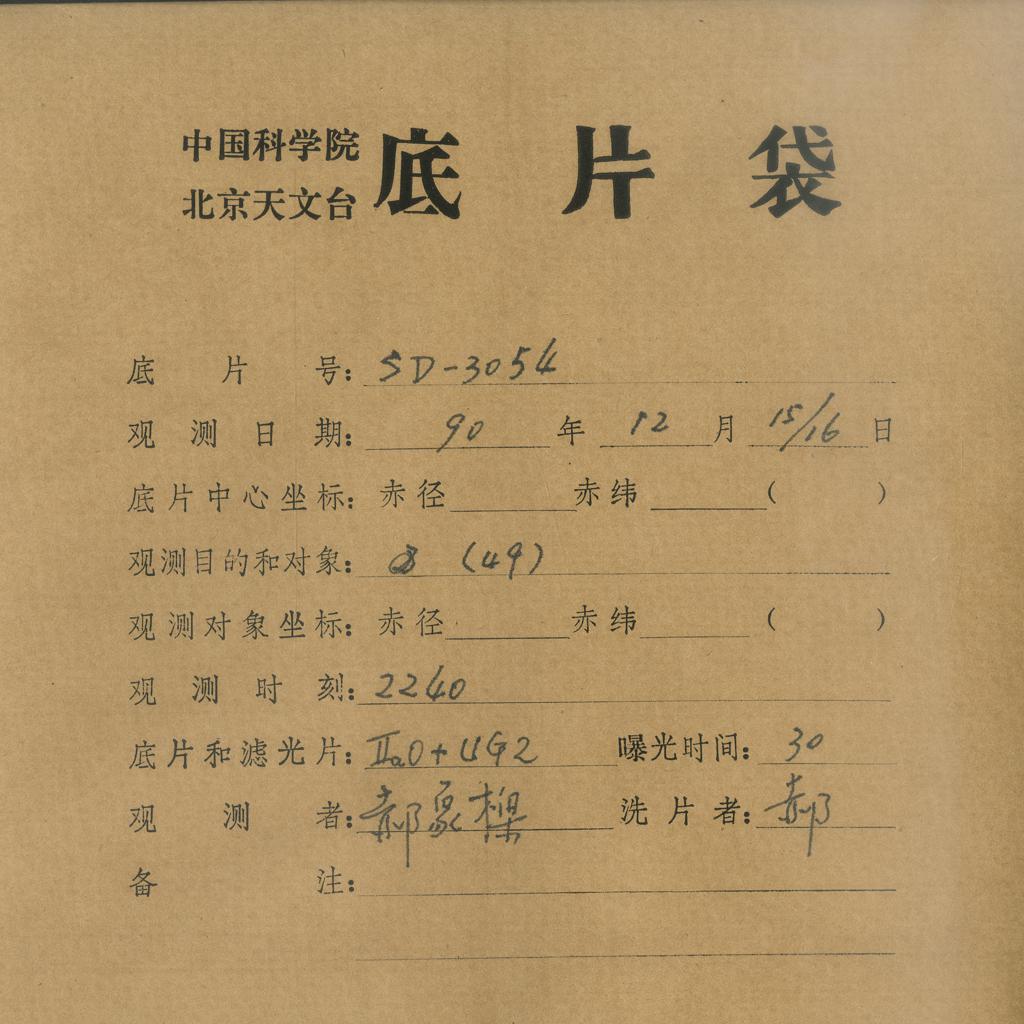 中国科学院
北京天文台
底片袋
底片号：SD-3054
观测日期：90年12月15/16日
底片中心坐标：赤径 赤纬 （ ）
观测目的和对象：(49)
观测对象坐标：赤径 赤纬 （ ）
观测时刻：2240
底片和滤光片：IIaO+UG2 曝光时间：30
观测者：郝象樑 洗片者：郝
备注：